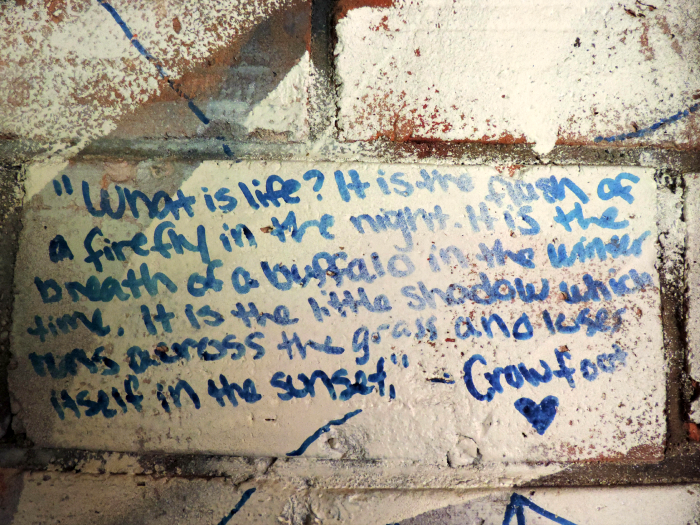 "What is life? It is the flash of
a firefly in the night. It is the
breath of a buffalo in the winter
time. It is the little shadow which
runs across the grass and loses
itself in the sunset." - Crowfoot